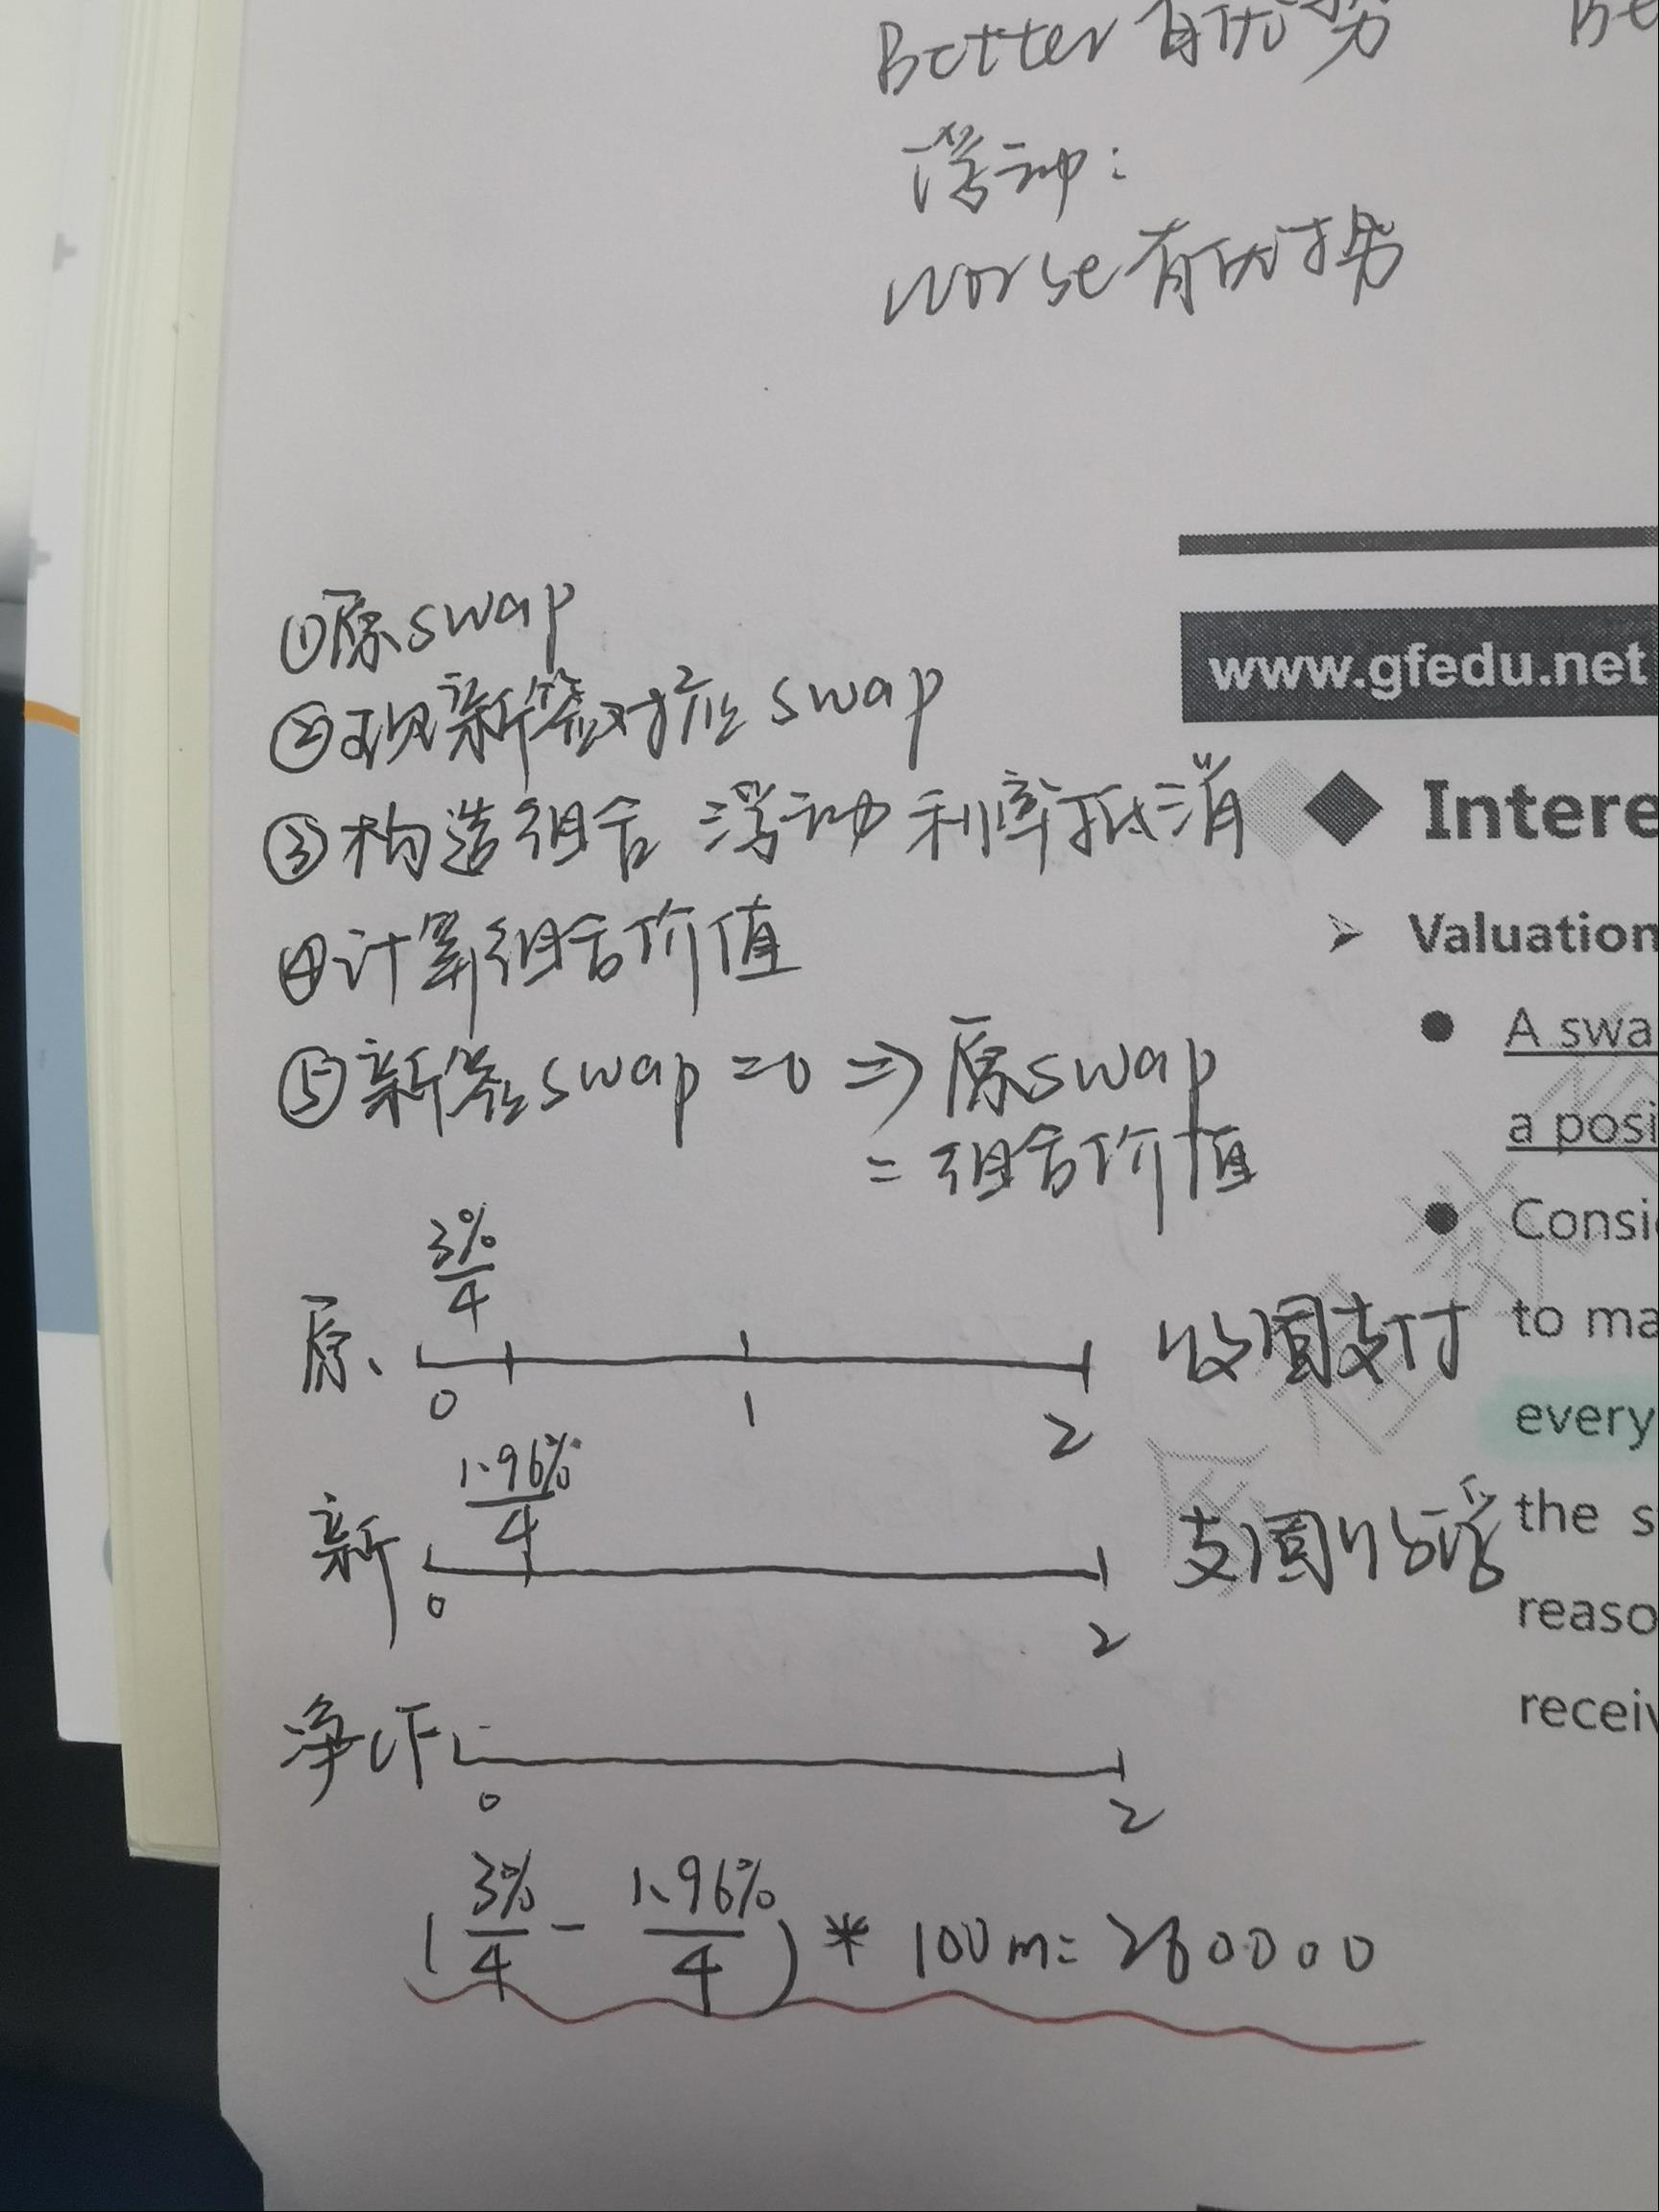 Better 有优势
Be
浮动：
worse 有优势
①原swap
www.gfedu.net
②现新签对应 swap
③构造组合 浮动利率抵消
Intere
④计算组合价值
Valuation
A swa
⑤新签swap=0 ⇒ 原swap
a posi
=组合价值
Consi
3%/4
原、
收固支付
to ma
0 1 2
every
1.96%/4
新
支固收浮
the s
0 2
reaso
receiv
净CF
0 2
(3%/4 - 1.96%/4) * 100m = 260000